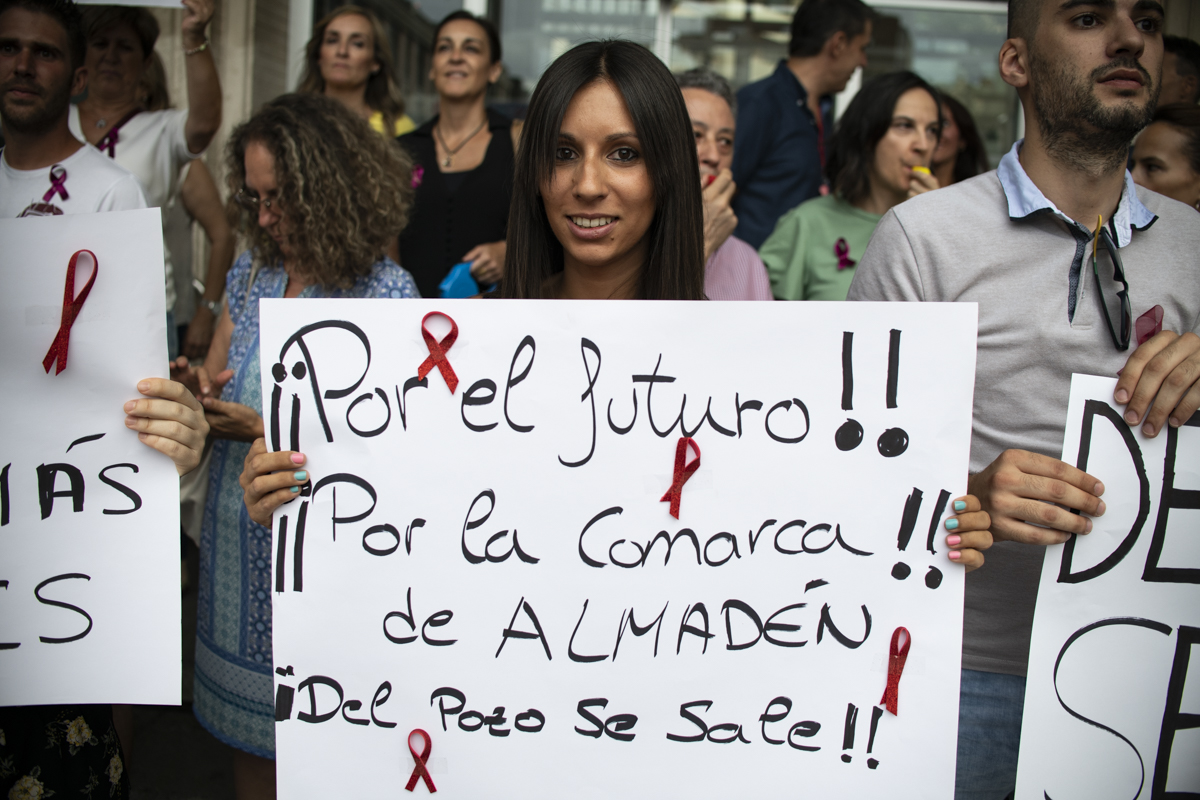 ¡¡Por el futuro!!
¡¡Por la Comarca!!
de ALMADÉN
¡Del Pozo Se Sale!!
MÁS
ES
DE
SE